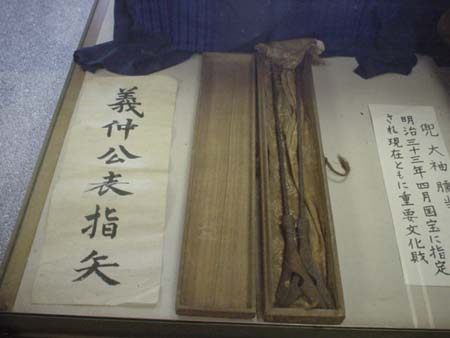 兜 大袖 臑当
明治三十三年四月国宝に指定
され現在ともに重要文化財
義仲公表指矢